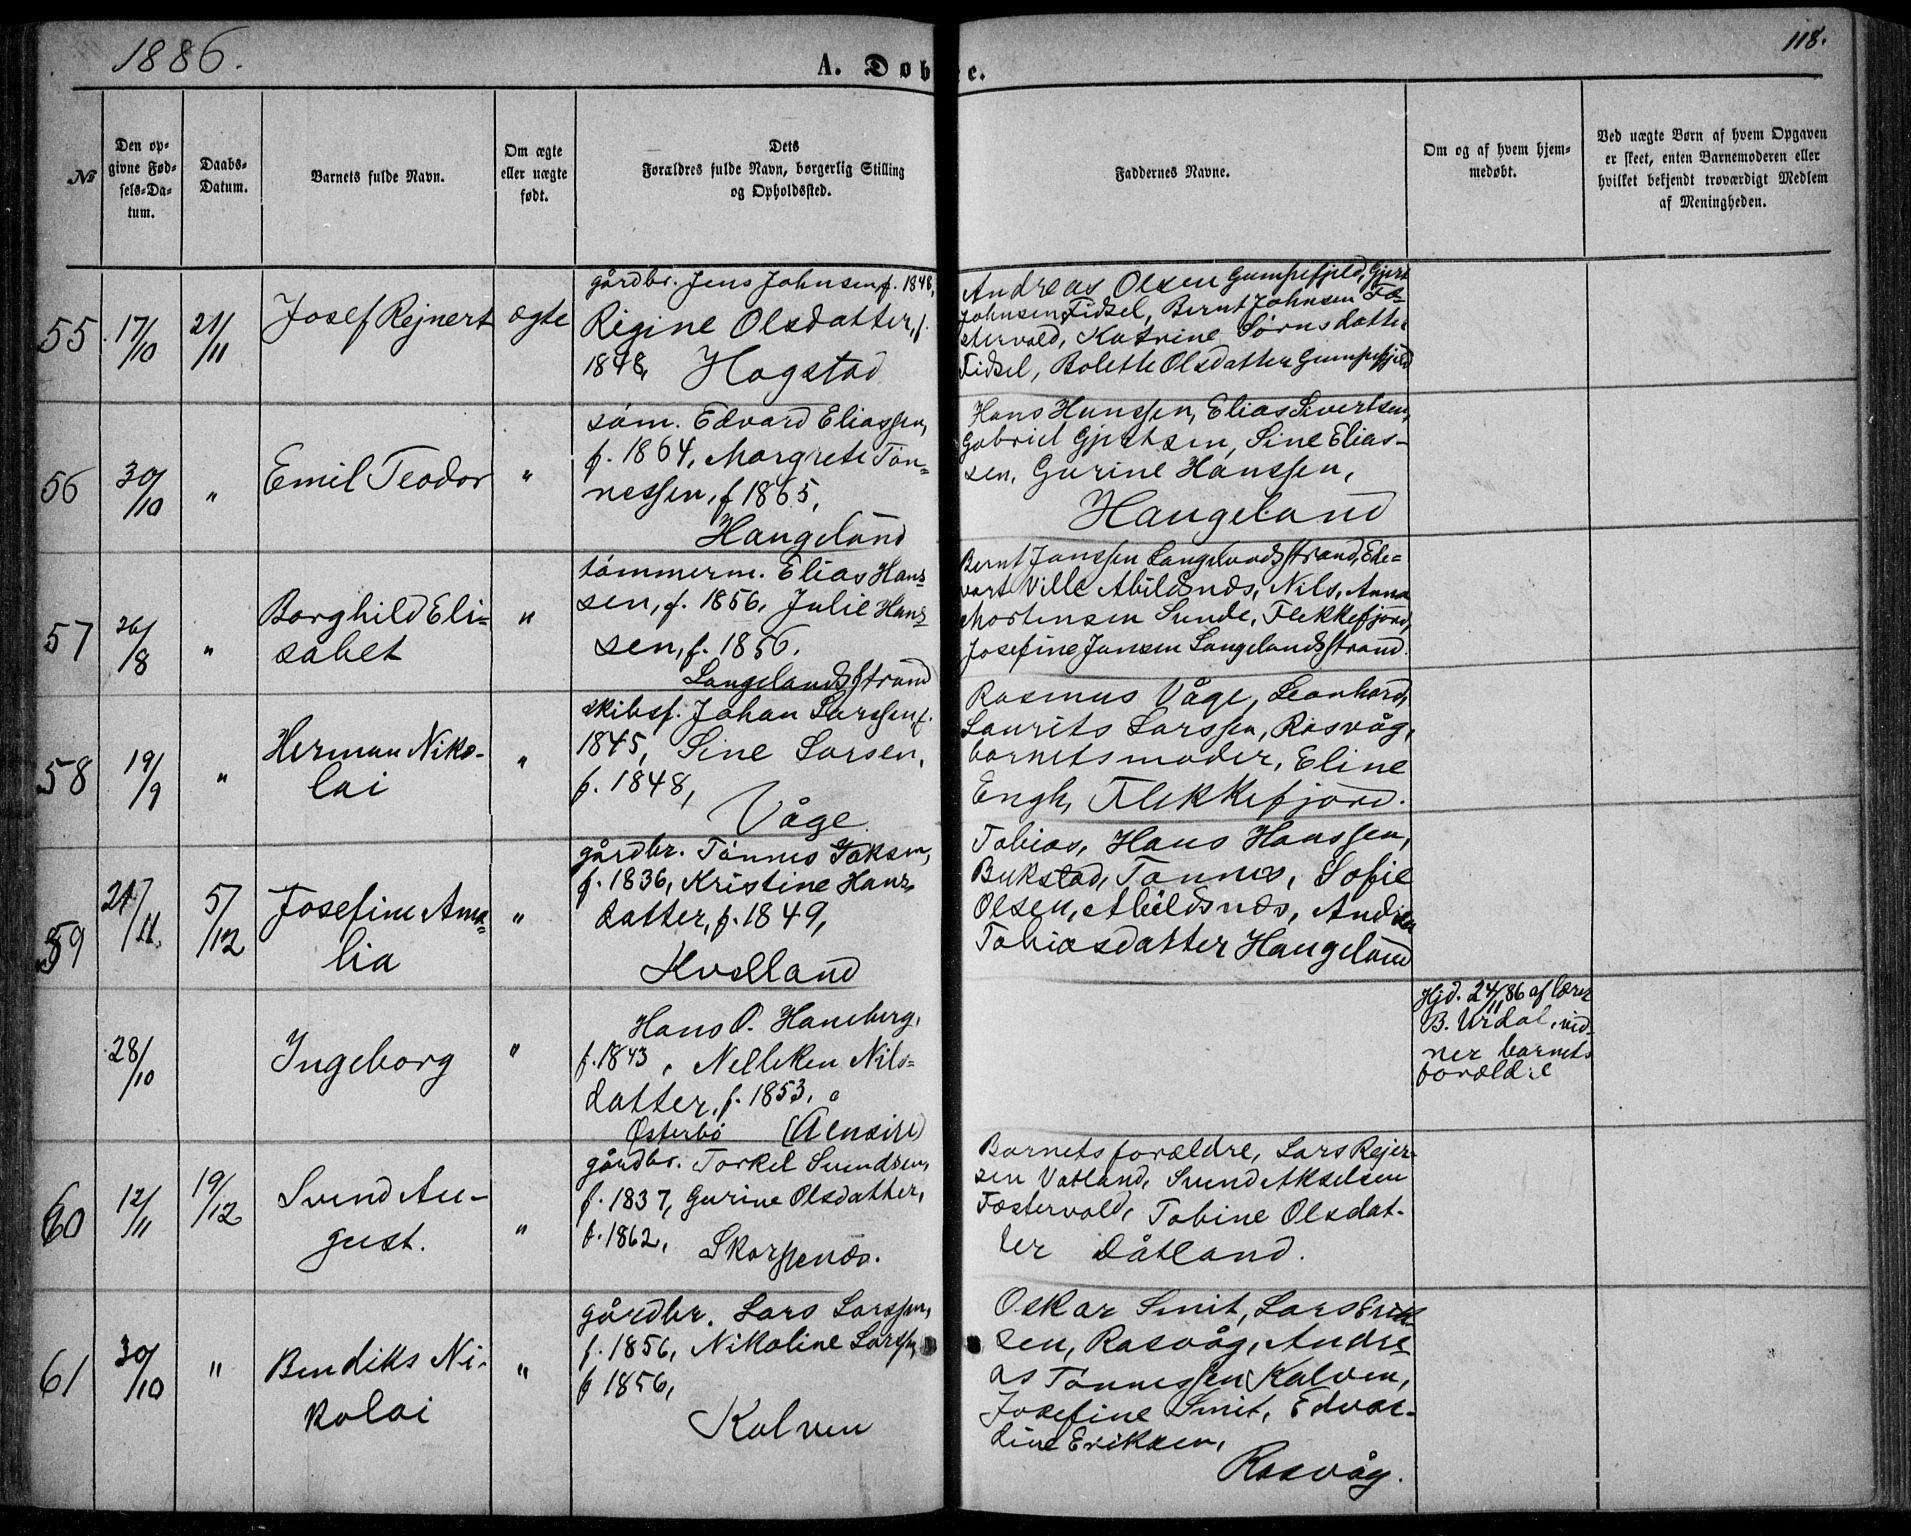 1886.
118.
A. Døbte.
№
Den opgivne Fødsels-Datum.
Daabs-Datum.
Barnets fulde Navn.
Om ægte eller uægte født.
Dets Forældres fulde Navn, borgerlig Stilling og Opholdssted.
Faddernes Navne.
Om og af hvem hjemmedøbt.
Ved uægte Børn af hvem Opgaven er skeet, enten Barnemoderen eller hvilket bekjendt troværdigt Medlem af Meningheden.
55
17/10
21/11
Josef Rejnert
ægte
gårdbr. Jens Johnsen f. 1848,
Regine Olsdatter, f.
1848, Hogstad
Andreas Olsen Gumpefjeld, Gjert
Johnsen Fidsel, Bernt Johnsen Fæ-
stervold, Katrine Sørnsdatter
Fidsel, Bolette Olsdatter Gumpefjeld
56
30/10
"
Emil Teodor
"
søm. Edvard Eliassen,
f. 1864, Margrete Tøn-
nessen, f. 1865,
Haugeland
Hans Hanssen, Elias Sivertsen,
Gabriel Gjertsen, Sine Elias-
sen, Gurine Hanssen,
Haugeland
57
26/8
"
Borghild Eli-
sabet
"
tømmerm. Elias Hans-
sen, f. 1856, Julie Hans-
sen, f. 1856.
Langelandsstrand
Bernt Janssen Langelandsstrand, Ede-
vart Ville Abildsnæs, Nils, Anna
Mortensen Sunde, Flekkefjord,
Josefine Jansen Langelandsstrand.
58
19/9
"
Herman Niko-
lai
"
skibsf. Johan Larssen f.
1845, Sine Larsen,
f. 1848,
Våge
Rasmus Våge, Leonhard,
Laurits Larssen, Rasvåg,
barnets moder, Eline
Engh, Flekkefjord.
59
21/11.
5/12
Josefine Ama-
lia
"
gårdbr. Tønnes
f. 1836, Kristine Hans-
datter, f. 1849,
Kvelland
Tobias, Hans Hanssen,
Bukstad, Tønnes, Sofie
Olsen, Abildsnæs, Andrea
Tobiasdatter Haugeland
28/10
Ingeborg
"
Hans O. Haneberg,
f. 1843, Nelleken Nils-
datter, f. 1853,
Østerbø
Hjd. 24/11 86 af lærer
B. Urdal, vid-
ner barnets
forældre
60
12/11
19/12
Svend Au-
gust.
"
gårdbr. Torkel Svendsen,
f. 1837, Gurine Olsdatter,
f. 1862, Skarpenæs.
Barnets forældre, Lars Rejer-
sen Vatland, Svend Akselsen
Fæstervold, Tobine Olsdat-
ter Dåtland.
61
30/10
"
Bendiks Ni-
kolai
"
gårdbr. Lars Larssen,
f. 1856, Nikoline Larssen
f 1856,
Kalven
Oskar Smit, Lars Erik-
sen, Rasvåg, Andre-
as Tønnessen Kalven,
Josefine Smit, Edvar-
dine Eriksen,
Rasvåg.